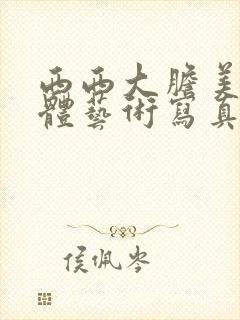 西西大膽美
體藝術寫真
侯佩岑